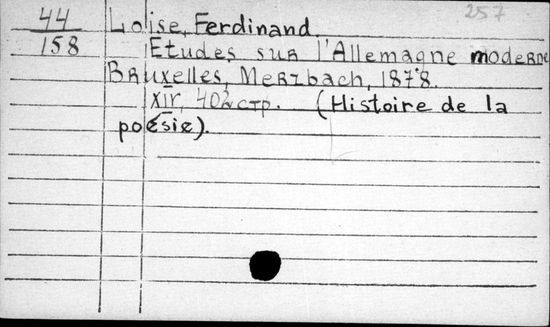 257
44
158
Loise, Ferdinand.
Etudes sur l'Allemagne moderne
Bruxelles, Merzbach, 1878.
XII, 402 стр. (Histoire de la
poésie).